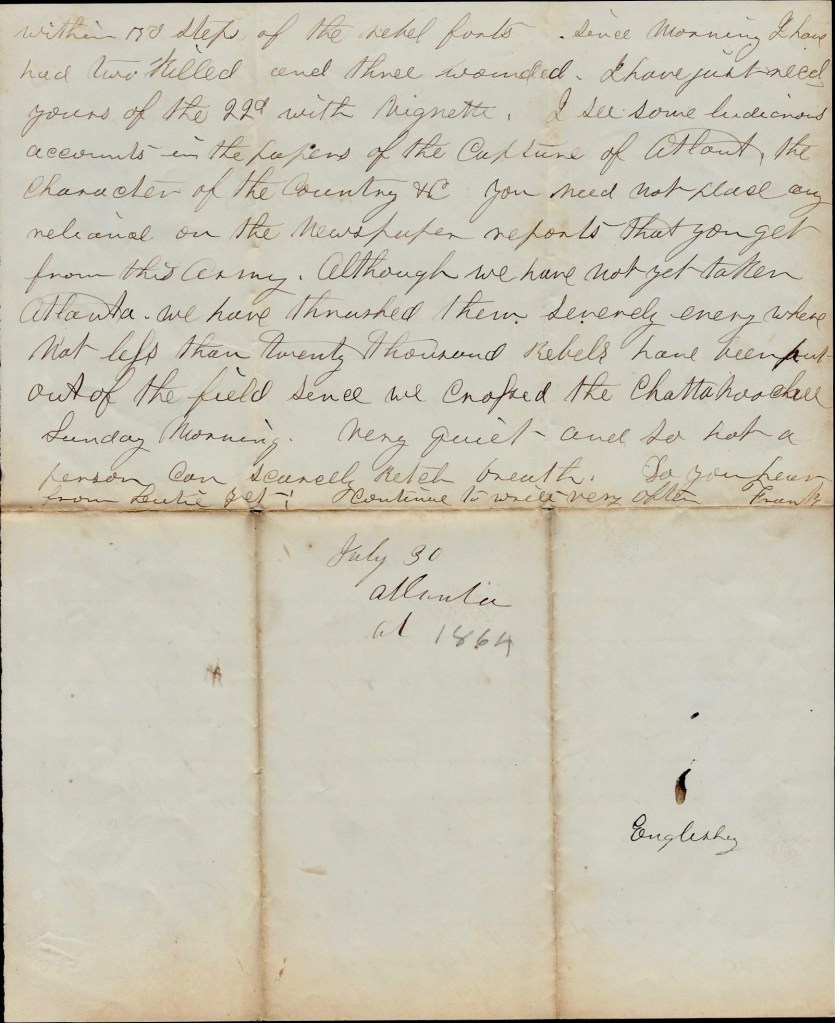 within 150 steps of the rebel forts . since Morning I have
had two Killed and three wounded. I have just recd
yours of the 22d with Vignette. I see some ludicrous
accounts in the papers of the Capture of Atlant, the
Character of the Country &c you need not place any
reliance on the Newspaper reports that you get
from this Army. Although we have not yet taken
Atlanta. we have thrashed them severely every where
Not less than twenty thousand Rebels have been put
out of the field since we Crossed the Chattahoochee
Sunday Morning. Very quiet and so hot a
person Can scarcely Ketch breath. Do you hear
from yet ! Continue to write very often Frank
July 30
atlanta
at 1864
Englesby